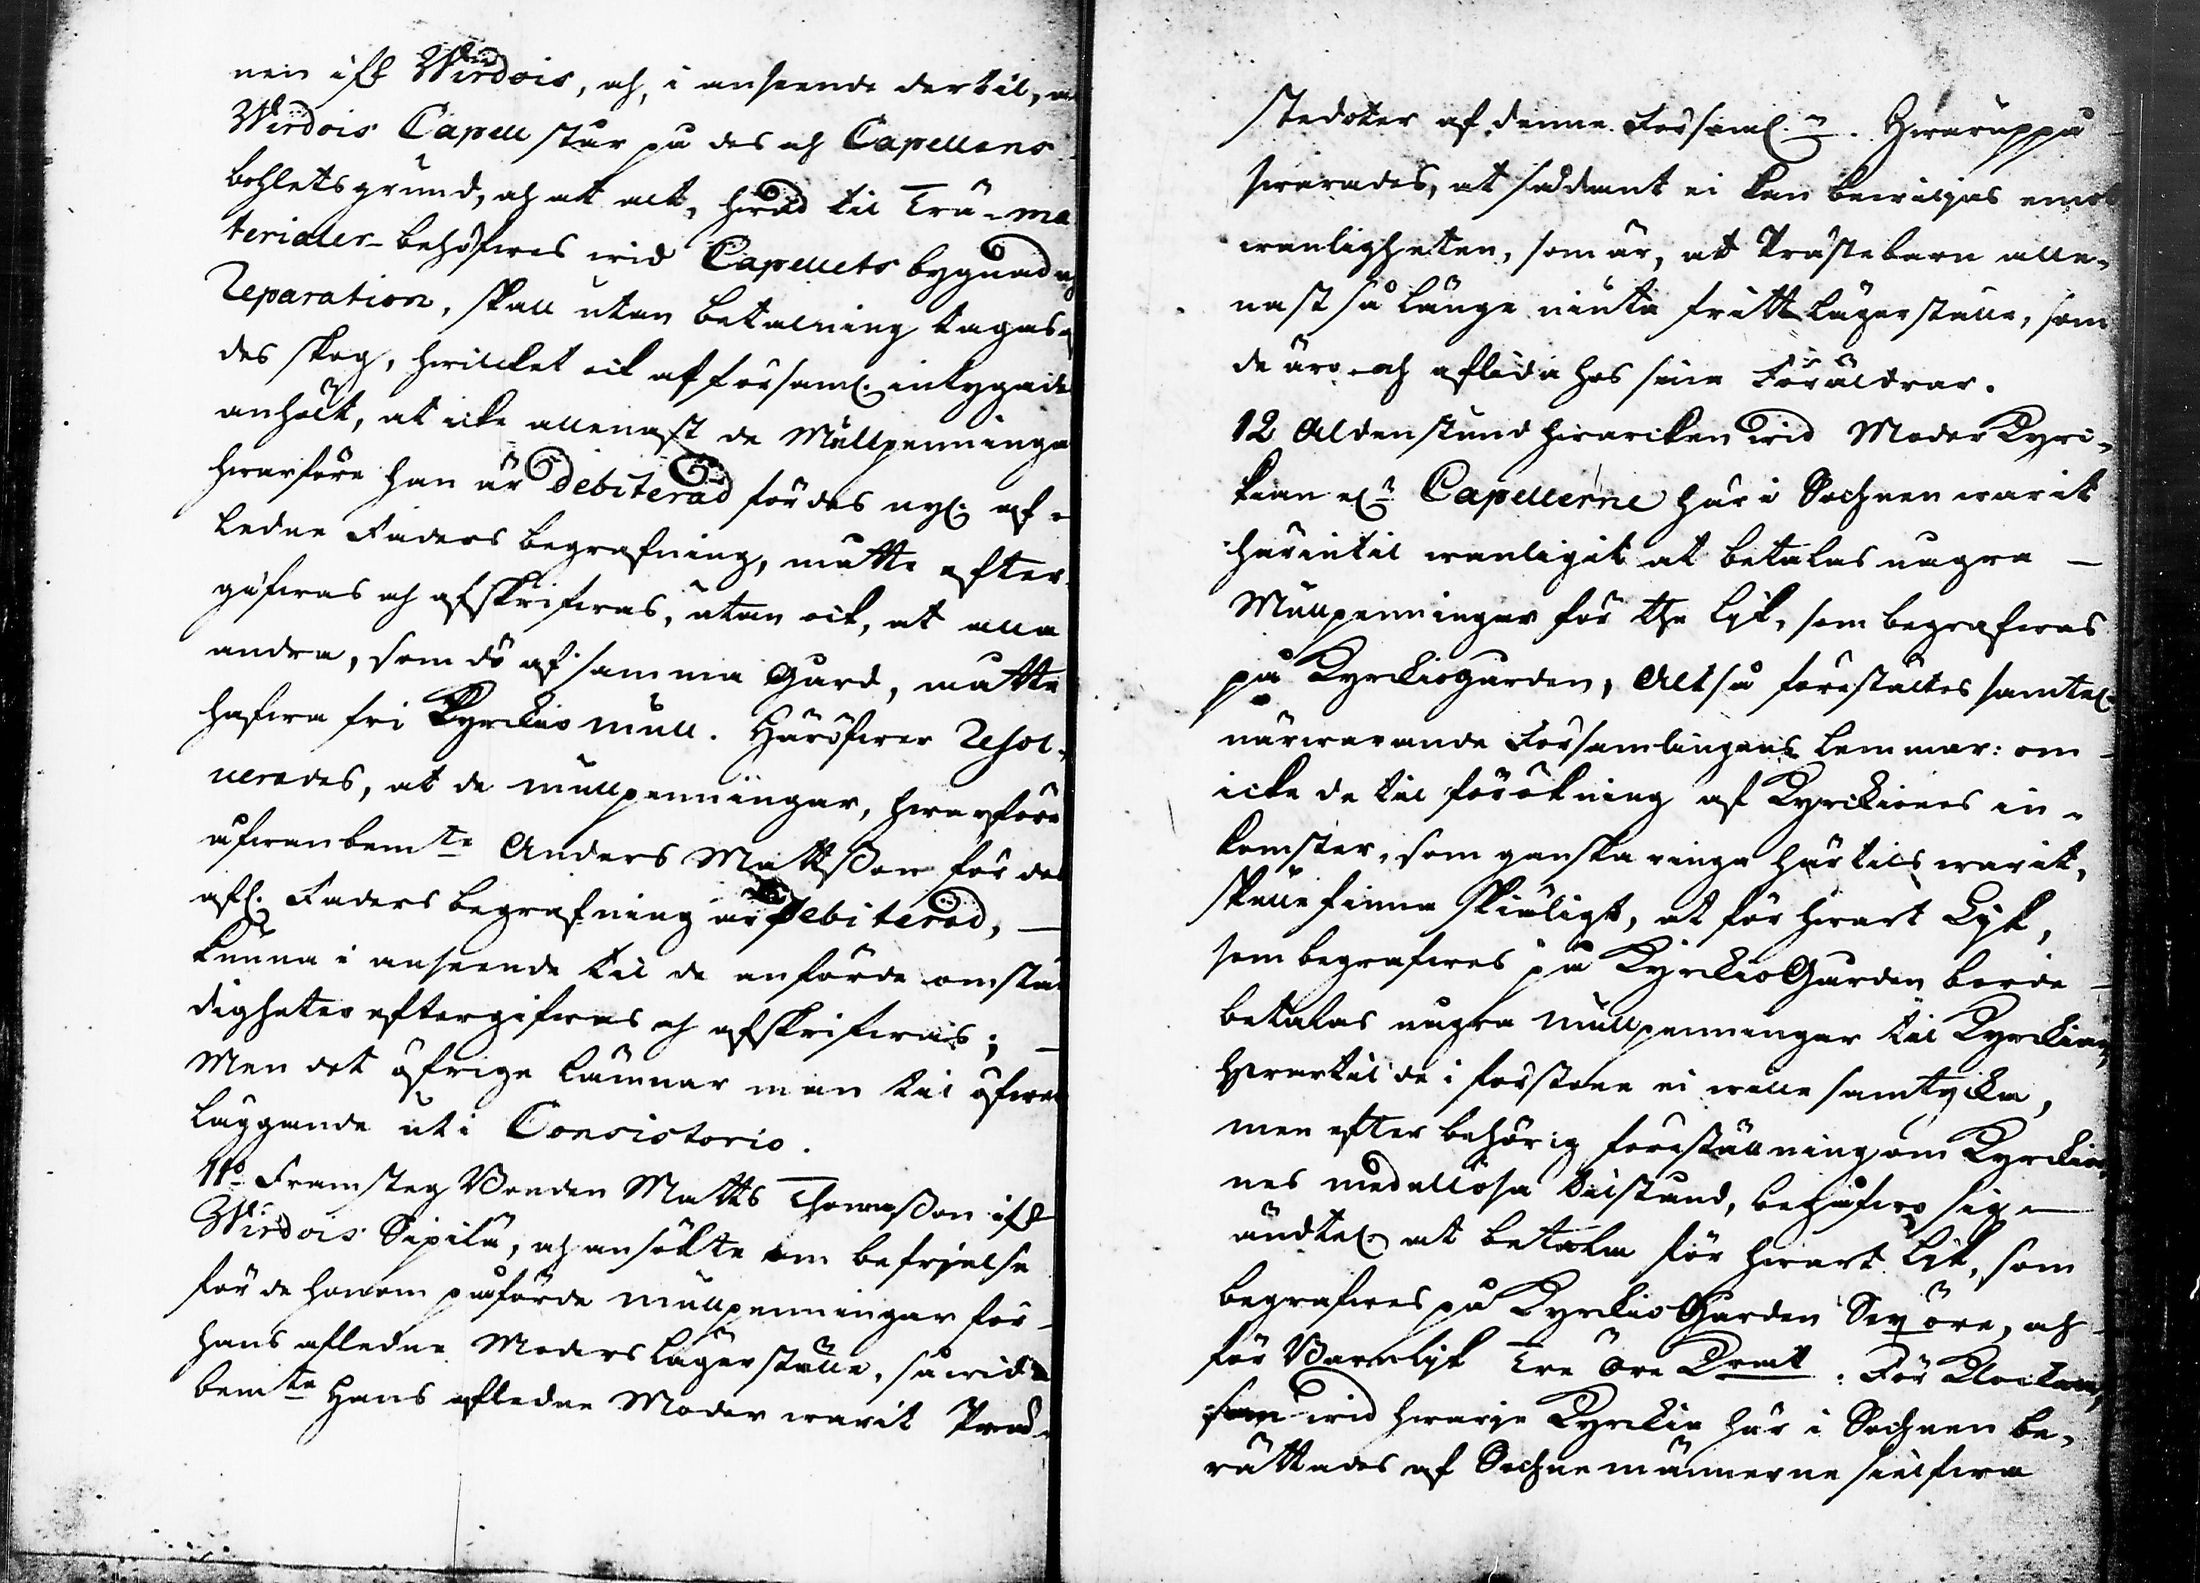 nen ifr. Wirdois, och, i anseende dertil, at
Wirdois Capell står på des och Capellans
bohletsgrund, och at alt, hwad til Trä-ma
terialer behöfwes wid Capellets bygnad och
Reparation, skall utan betalning tagas af
des skog, hwilcket ock af församl. intygade
anhölt, at icke allenast de Mullpenningar
hwarföre han är debiterad för des nyl. af-
ledne Faders begrafning, måtte efter-
gifwas och afskrifwas, utan ock, at alla
andra, som dö af samma Gård, måtte
hafwa fri Kyrckio mull. Häröfwer Resol-
verades, at de mullpenningar, hwarföre
ofwanbemte Anders Mattsson för des
afl. Faders begrafning är Debiterad, —
kunna i anseende til de anförde omstän
digheter eftergifwas och afskrifwas; —
Men det öfrige lämnar man til öfwer
läggande uti Consistorio.
11o Framsteg Bonden Matts Thomasson ifr
Wirdois Sipilä, och ansökte om befrielse
för de honom påförde mullpenningar för
hans afledne Moders lägerställe, såwida
bemte Hans afledne Moder warit Präd-
stedoter af denne Församl:n. Hwaruppå
swarades, at sådant ei kan bewiljas emot
wanligheten, som är, att Prästebarn alle-
nast så länge niuta fritt lägerställe, som
de äro och aflida hos sina Föräldrar.
12 Aldenstund hwarcken wid Moder Kyri-
kian el:r Capellerne här i Sochnen warit
härintil wanligit at betalas någre —
Mullpenningar för the Lijk, som begrafwas
på Kyrckiogården, Altså förestältes samtel.
närwarande Församlingens lemmar: om
icke de til förökning af Kyrckiones in-
komster, som ganska ringa härtils warit,
skulle finna skiäligt, at för hwart Lijk,
som begrafwes på KyrckioGården borde
betalas någre mullpenningar til Kyrckian,
Hwartil de i förstone ei wille samtycka,
men efter behörig föreställning om Kyrckio
nes medellösa tilstånd, begåfwo sig
ändtel. at betala för hwart Lijk, som
begrafwes på Kyrckio Gården Sex öre, och
för Barnlijk Tre öre Kmt. För Klockan,
som wid hwarje Kyrckia här i Sochnen be-
rättades af Sochnemännerne sielfwa